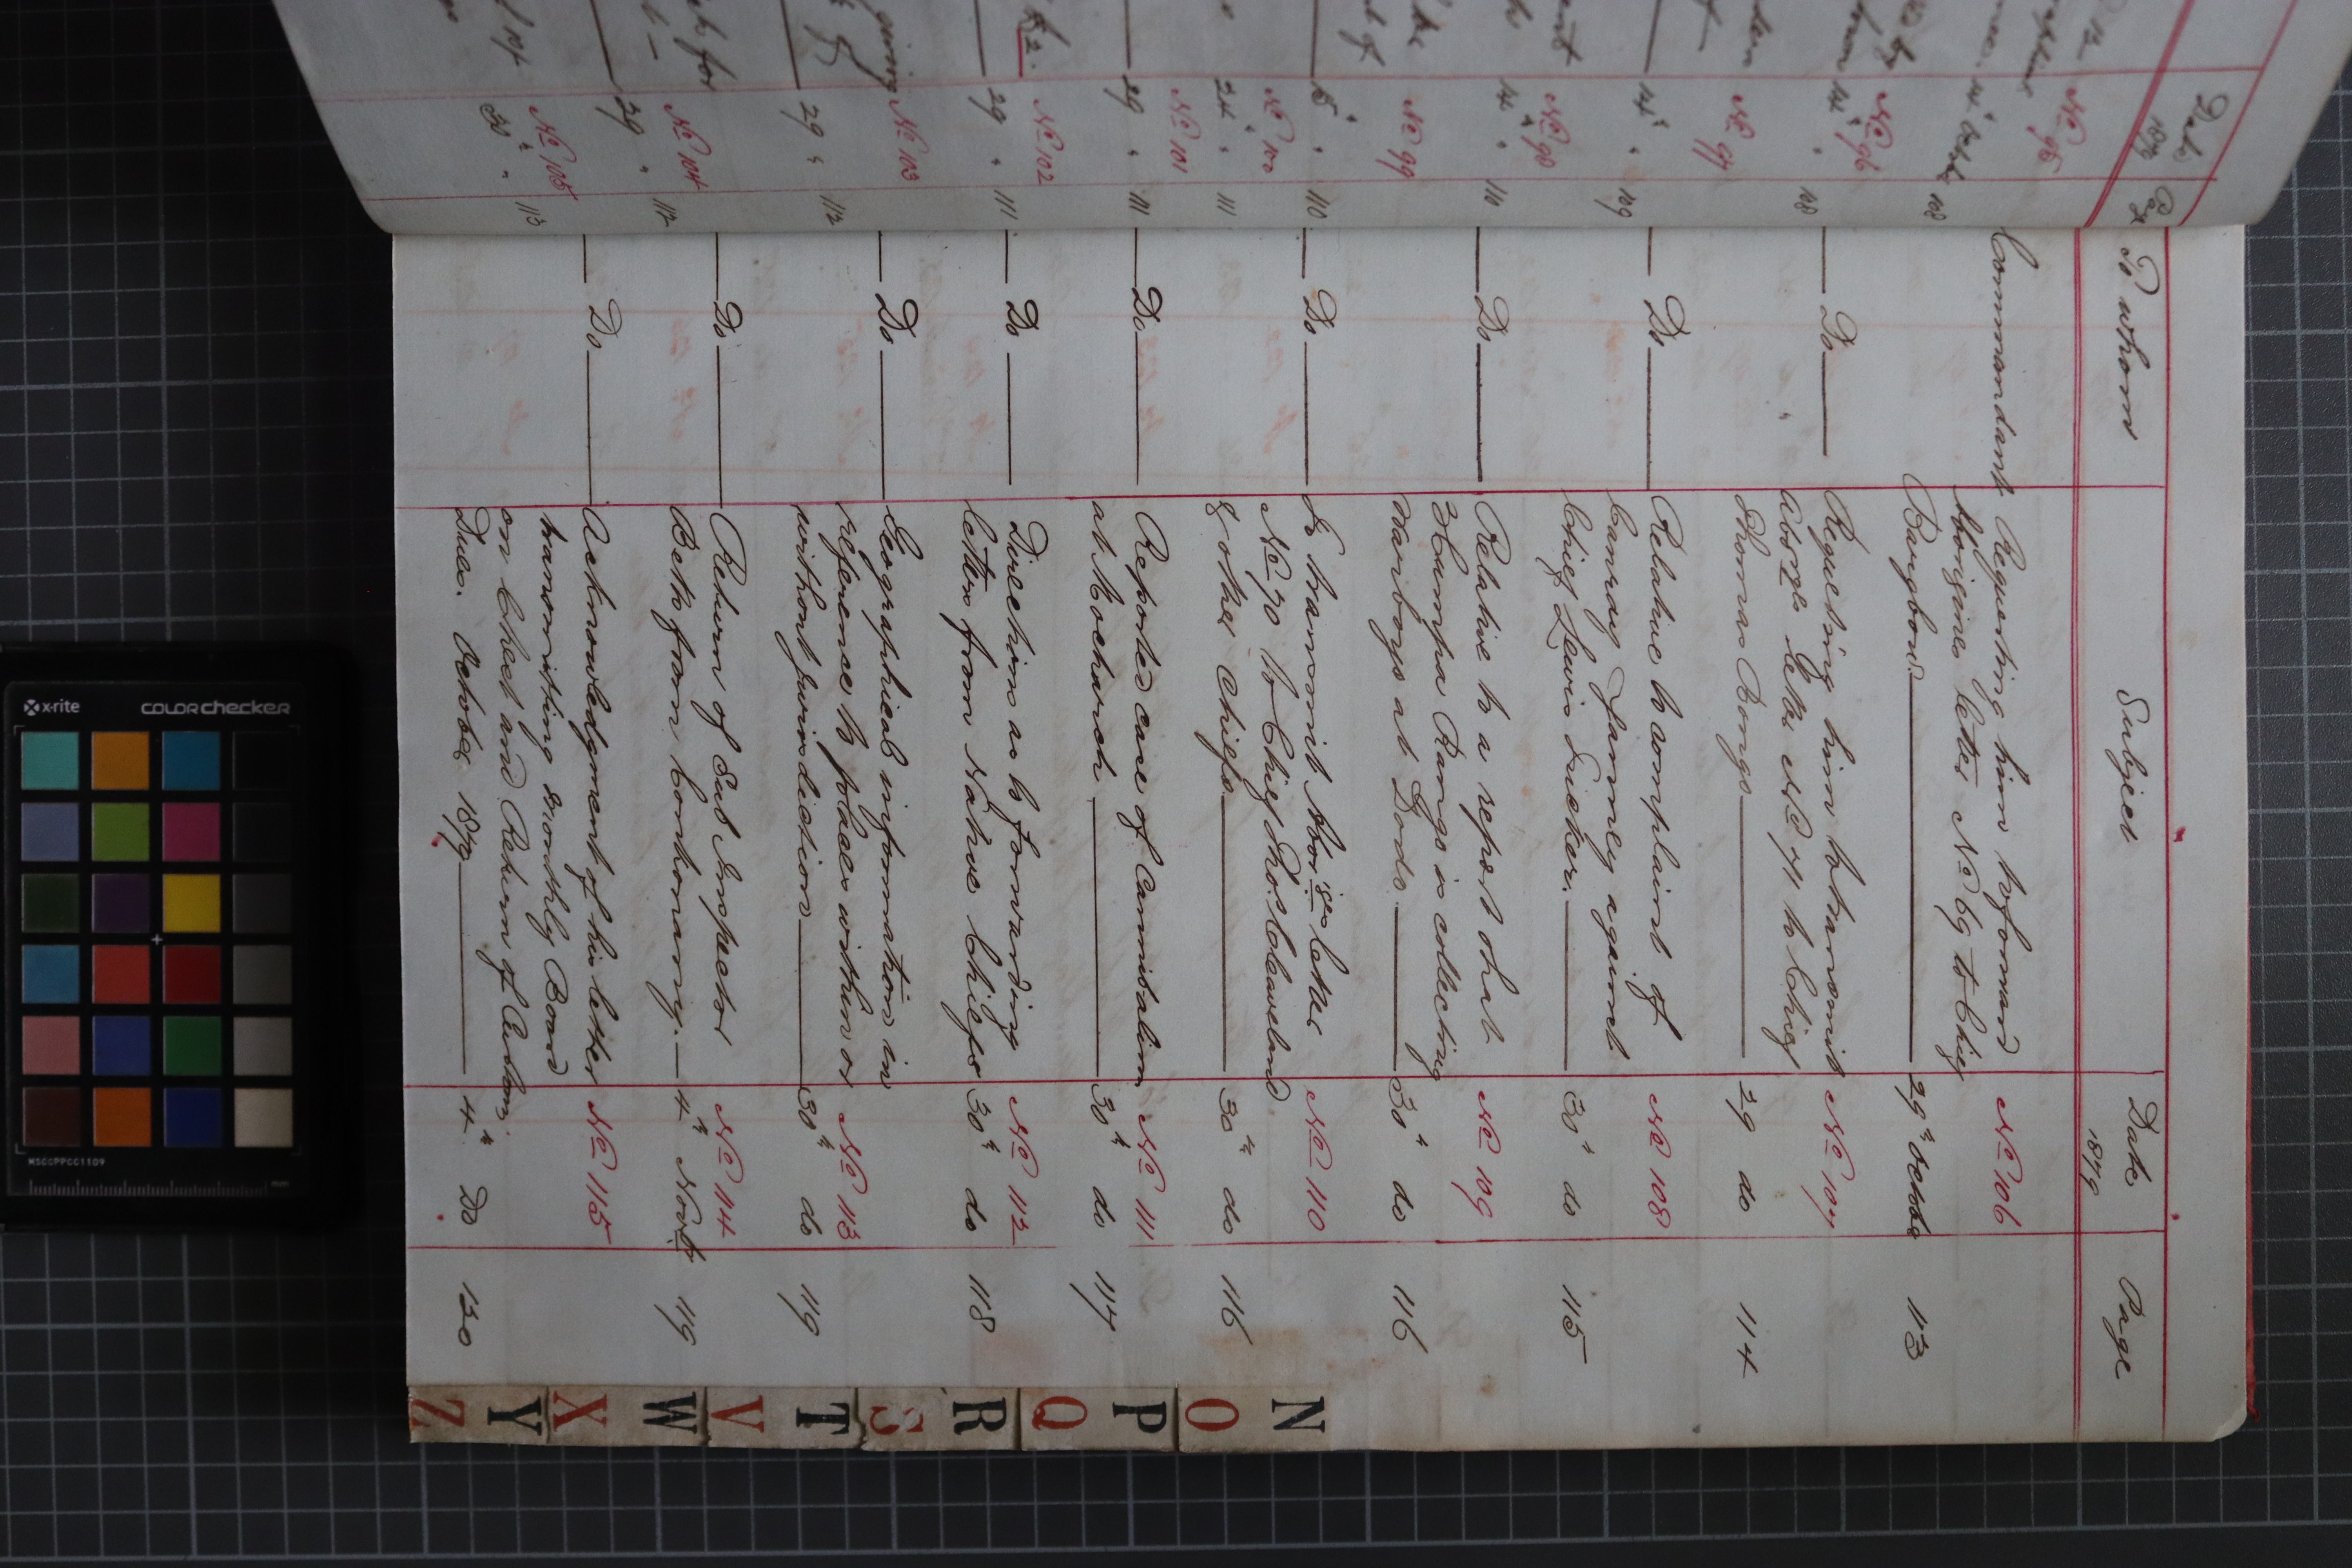 Date
1879
Page
No 95
14th Octobr 108
No 96
14th " 108
No 97
14th " 109
No 98
14th " 110
No 99
15th " 110
No 100
24th " 111
No 101
29 " 111
No 102
29 " 111
No 103
29 " 112
No 104
29 " 112
No 105
30th " 113
To whom Subject Date 1879 Page
Commandant Requesting him to forward No 106
Aborigines letter No 69 to Chief
Bangbow 29th October 113
Do Requesting him to transmit No 107
Aborgs letter No 71 to Chief
Thomas Bongo 29 do 114
Do Relative to complaint of No 108
Canray Fanney against
Chief Lewis Tucker. 30th do 115
Do Relative to a report that No 109
Humpa Rango is collecting
Warboys at Dodo. 30th do 116
Do To transmit Aborigines letter No 110
No 70 to Chief Thos. Cleaveland
& other Chiefs 30th do 116
Do Reported case of Cannibalism No 111
at Mocharch 30th do 117
Do Direction as to forwarding No 112
letters from Native Chiefs 30th do 118
Do Geographical information in No 113
reference to places within or
without jurisdiction 30th do 119
Do Return of Sub Inspector No 114
Beth from Conhomany. 4th Novb 119
Do Acknowledgment of his letter No 115
transmitting monthly Board
on Chest and Return of Customs
Dues. October 1879 4th Do 130
N
O
P
Q
R
S
T
V
W
X
Y
Z
x-rite colorchecker
MSCCPPCC1109